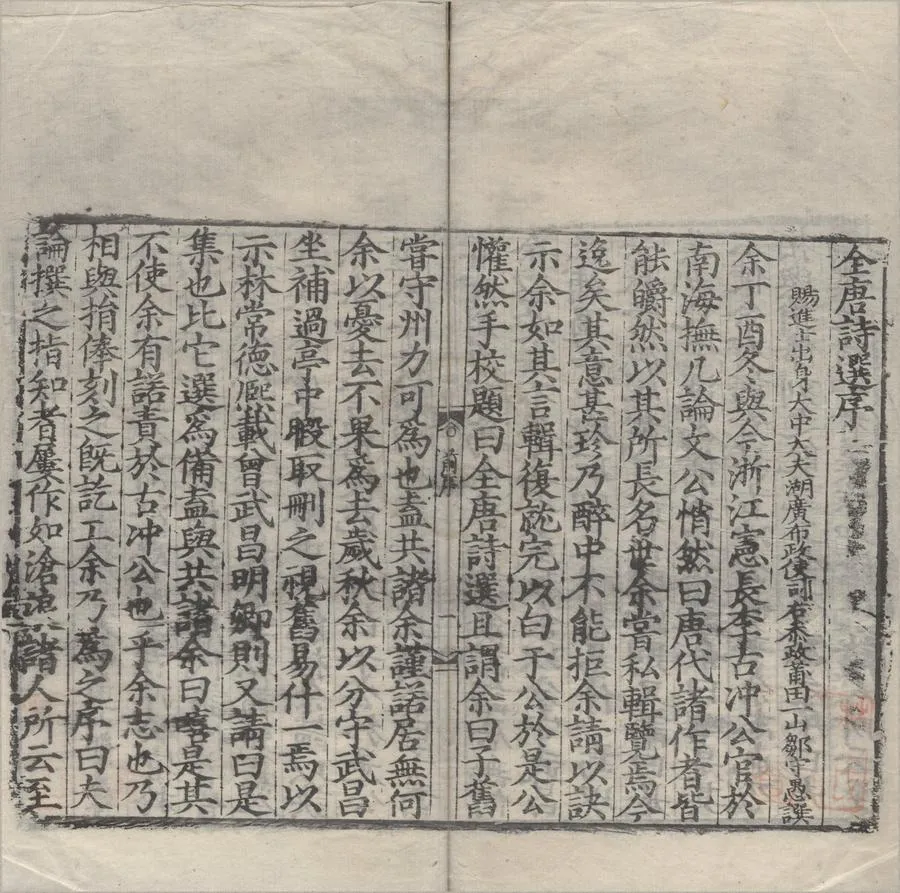 全唐詩選序
賜進士出身大中大夫湖廣布政使司右參政莆田一山鄒守愚撰
余丁酉冬與今浙江憲長李古冲公官於
南海撫几論文公悄然曰唐代諸作者皆
能皭然以其所長名世余嘗私輯覽焉今
逸矣其意甚珍乃醉中不能拒余請以訣
示余如其言輯復就完以白于公於是公
懽然手校題曰全唐詩選且謂余曰子舊
前序
嘗守州力可為也盍共諧余謹諾居無何
余以憂去不果為去歲秋余以分守武昌
坐補過亭中殷取刪之視舊易什一焉以
示林常德熈載曾武昌明卿則又請曰是
集也比它選為備盍與共諸余曰嘻是其
不使余有諾責於古冲公也乎余志也乃
相與捐俸刻之既訖工余乃為之序曰夫
論撰之指知者屢作如滄浪諸人所云至